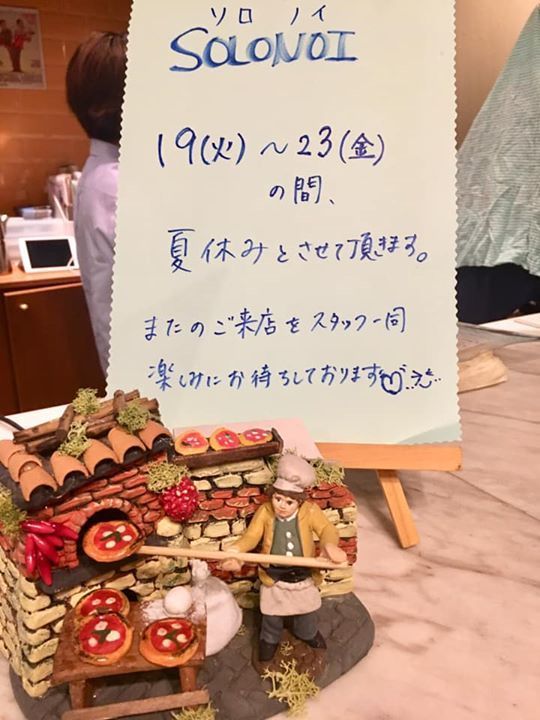 ソロ ノイ
SOLONOI
19(火)～23(金)
の間、
夏休みとさせて頂きます。
またのご来店をスタッフ一同
楽しみにお待ちしております